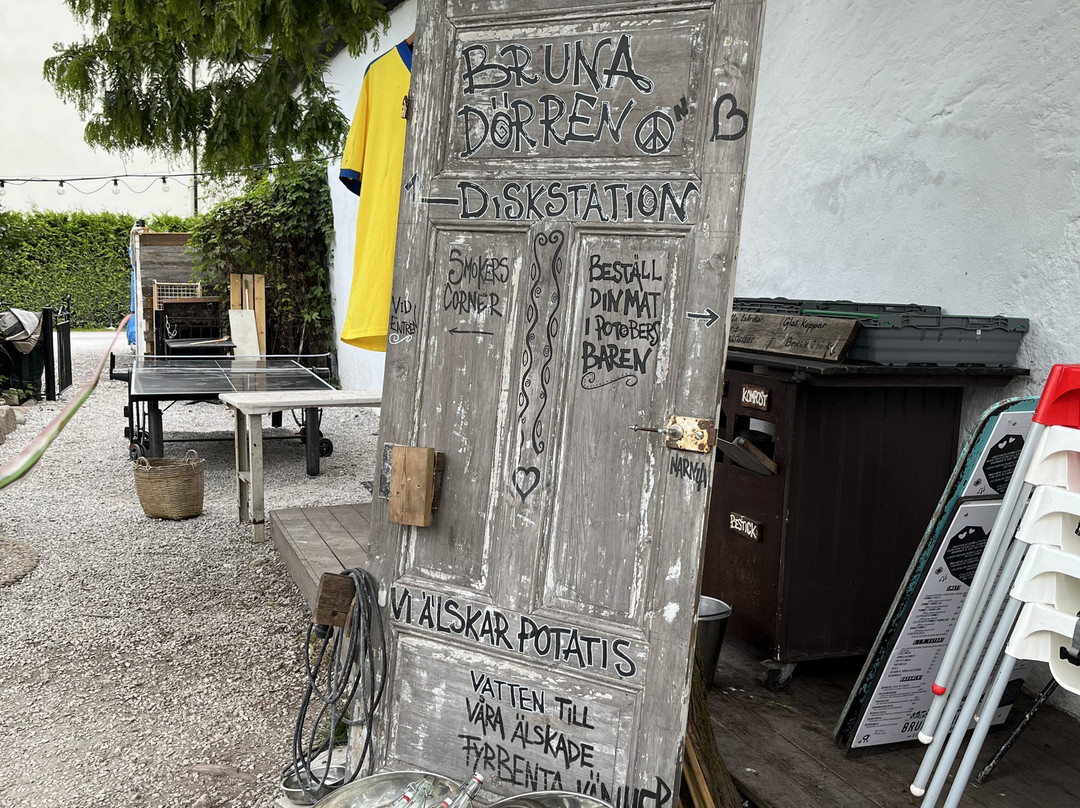 BRUNA
DÖRREN
DISKSTATION
SMOKERS
CORNER
VID
BESTÄLL
DIN MAT
I POTOBERS
BAREN
NÄRMA
VI ÄLSKAR POTATIS
VATTEN TILL
VÅRA ÄLSKADE
FYRBENTA VÄNNER
Glas Koppar
KOMPOST
BESTICK
BRUN